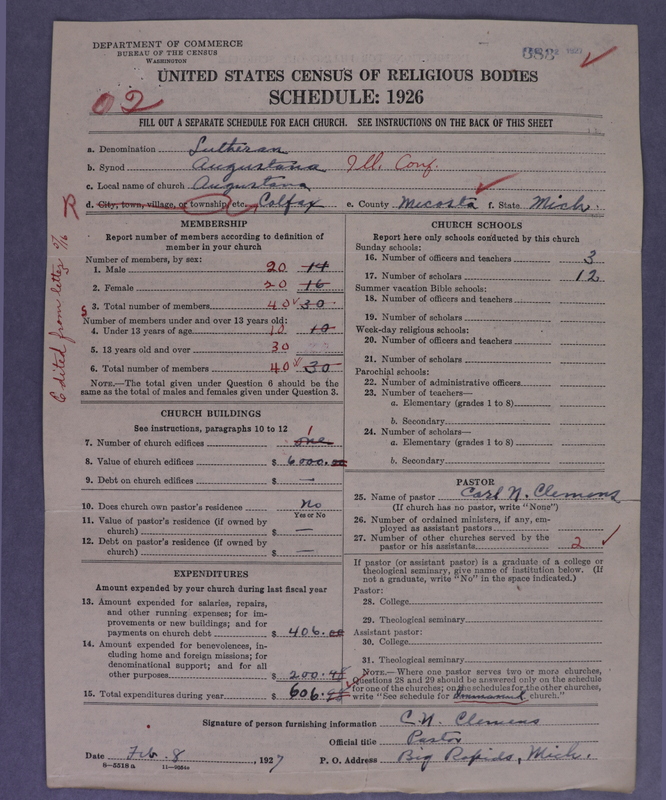 DEPARTMENT OF COMMERCE
BUREAU OF THE CENSUS
WASHINGTON
UNITED STATES CENSUS OF RELIGIOUS BODIES
SCHEDULE: 1926
02
FILL OUT A SEPARATE SCHEDULE FOR EACH CHURCH. SEE INSTRUCTIONS ON THE BACK OF THIS SHEET
a. Denomination Lutheran
b. Synod Augustana Ill. Conf.
c. Local name of church Augustana
d. City, town, village, or township, etc. Colfax e. County Mecosta f. State Mich.
R
Edited from letter
MEMBERSHIP
Report number of members according to definition of
member in your church
Number of members, by sex:
1. Male 20 14
2. Female 20 16
3. Total number of members 40 30
Number of members under and over 13 years old:
4. Under 13 years of age 10 10
5. 13 years old and over 30
6. Total number of members 40 30
NOTE.—The total given under Question 6 should be the
same as the total of males and females given under Question 3.
CHURCH BUILDINGS
See instructions, paragraphs 10 to 12
7. Number of church edifices one 1
8. Value of church edifices $ 6000.00
9. Debt on church edifices $ —
10. Does church own pastor's residence No
Yes or No
11. Value of pastor's residence (if owned by
church) $ —
12. Debt on pastor's residence (if owned by
church) $ —
EXPENDITURES
Amount expended by your church during last fiscal year
13. Amount expended for salaries, repairs,
and other running expenses; for im-
provements or new buildings; and for
payments on church debt $ 406.00
14. Amount expended for benevolences, in-
cluding home and foreign missions; for
denominational support; and for all
other purposes $ 200.48
15. Total expenditures during year $ 606.48
CHURCH SCHOOLS
Report here only schools conducted by this church
Sunday schools:
16. Number of officers and teachers 3
17. Number of scholars 12
Summer vacation Bible schools:
18. Number of officers and teachers
19. Number of scholars
Week-day religious schools:
20. Number of officers and teachers
21. Number of scholars
Parochial schools:
22. Number of administrative officers
23. Number of teachers—
a. Elementary (grades 1 to 8)
b. Secondary
24. Number of scholars—
a. Elementary (grades 1 to 8)
b. Secondary
PASTOR
25. Name of pastor Carl N. Clemens
(If church has no pastor, write "None")
26. Number of ordained ministers, if any, em-
ployed as assistant pastors
27. Number of other churches served by the
pastor or his assistants 2
If pastor (or assistant pastor) is a graduate of a college or
theological seminary, give name of institution below. (If
not a graduate, write "No" in the space indicated.)
Pastor:
28. College
29. Theological seminary
Assistant pastor:
30. College
31. Theological seminary
NOTE.—Where one pastor serves two or more churches,
Questions 28 and 29 should be answered only on the schedule
for one of the churches; on the schedules for the other churches,
write "See schedule for Immanuel church."
Signature of person furnishing information C. N. Clemens
Official title Pastor
Date Feb. 8, 1927 P. O. Address Big Rapids, Mich.
8-5518a